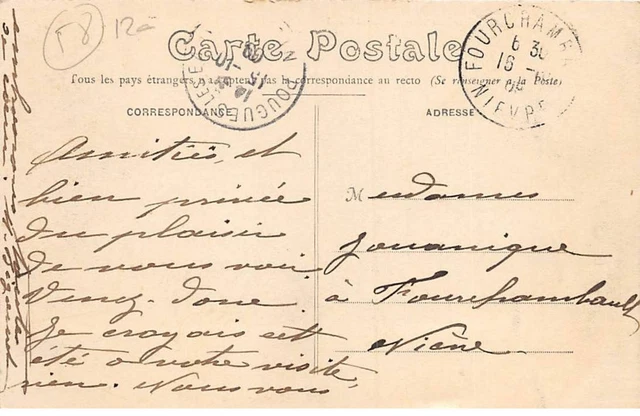 58 12a
Carte Postale
Tous les pays étrangers n'acceptent pas la correspondance au recto (Se renseigner à la Poste)
CORRESPONDANCE
ADRESSE
FOURCHAMB
6 30
16
NIEVRE
POUGUES-LES-E
Amitiés, et
bien privée
du plaisir
de vous voir.
Venez-donc.
Je croyais cet
été a votre visite,
rien. Nous vous
Mesdames
Jouanique
à Fourchambault
Nièvre